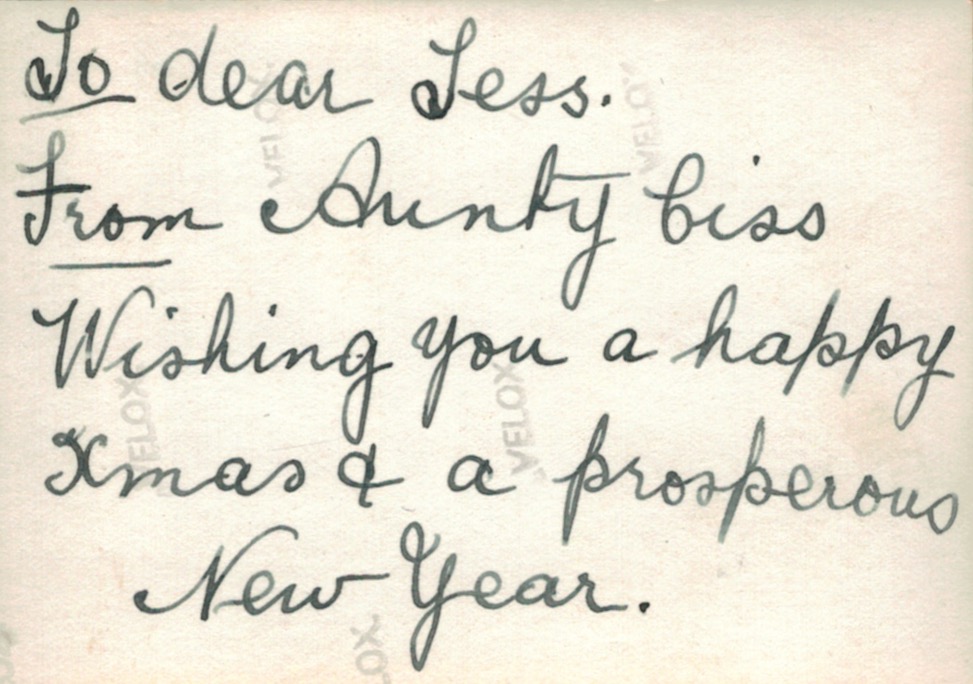 To dear Tess.
From Aunty Ciss
Wishing you a happy
Xmas & a prosperous
New Year.
VELOX
VELOX
VELOX
VELOX